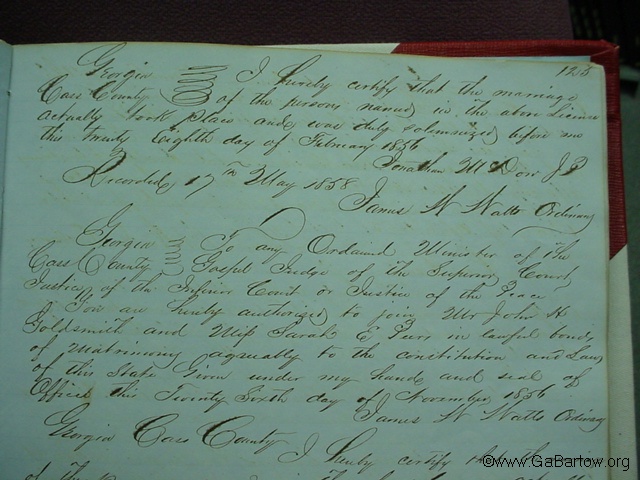 123
Georgia I hereby certify that the marriage
Cass County of the persons named in the above License
actually took place and was duly solemnized before me
this twenty Eighth day of February 1856
Jonathan McDow JP
Recorded 17th May 1858
James W Watts Ordinary
Georgia To any Ordained Minister of the
Cass County Gospel Judge of the Superior Court,
Justice of the Inferior Court or Justice of the Peace
You are hereby authorised to join Mr John H
Goldsmith and Miss Sarah E in lawful bonds
of Matrimony agreeably to the constitution and Laws
of this State Given under my hand and seal of
Office this Twenty Sixth day of November 1856
James W Watts Ordinary
Georgia Cass County I hereby certify that the
of the
©www.GaBartow.org